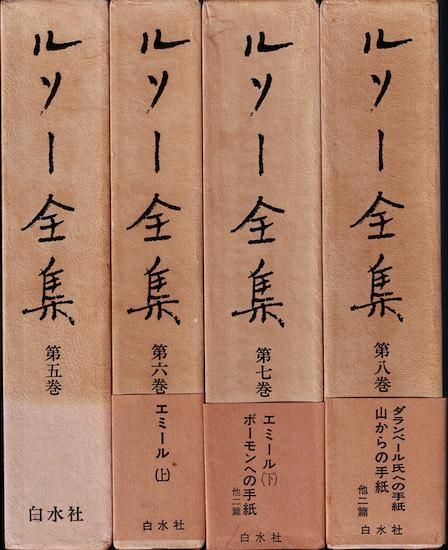 ルソー全集
第五巻
白水社
ルソー全集
第六巻
エミール(上)
白水社
ルソー全集
第七巻
エミール(下)
ボーモンへの手紙
他二篇
白水社
ルソー全集
第八巻
ダランベール氏への手紙
山からの手紙
他二篇
白水社